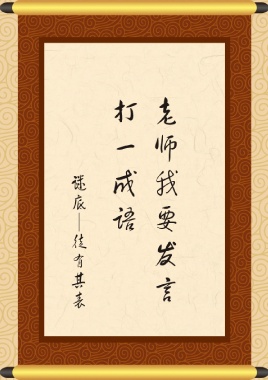 老师我要发言
打一成语
谜底——徒有其表